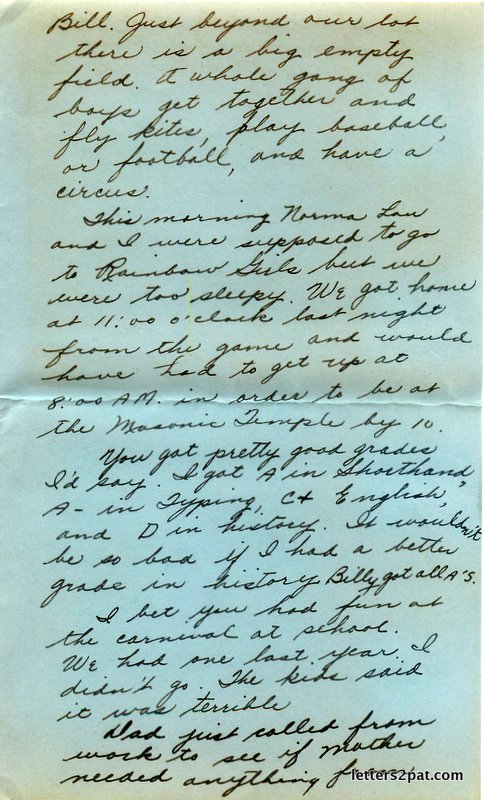 Bill. Just beyond our lot
there is a big empty
field. A whole gang of
boys get together and
fly kites, play baseball,
or football, and have a
circus.
This morning Norma Lou
and I were supposed to go
to Rainbow Girls but we
were too sleepy. We got home
at 11:00 o'clock last night
from the game and would
have had to get up at
8:00 AM. in order to be at
the Masonic Temple by 10.
You got pretty good grades
I'd say. I got A in Shorthand,
A- in Typing, C+ English,
and D in history. It wouldn't
be so bad if I had a better
grade in history Billy got all A's.
I bet you had fun at
the carnival at school.
We had one last year. I
didn't go. The kids said
it was terrible
Dad just called from
work to see if Mother
needed anything from
letters2pat.com